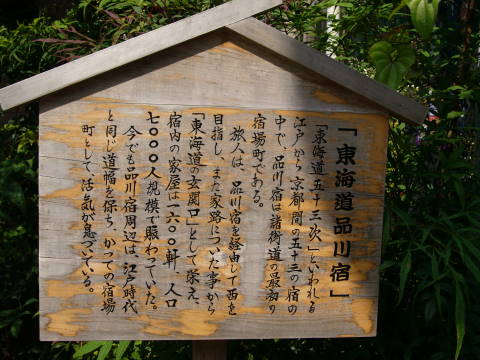 「東海道品川宿」
「東海道五十三次」といわれる
江戸から京都間の五十三の宿の
中で、品川宿は諸街道の最初の
宿場町である。
旅人は、品川宿を経由して西を
目指し、また家路についた事から
東海道の玄関口として栄え、
宿内の家屋は一六〇〇軒、人口
七〇〇〇人規模で賑わっていた。
今でも品川宿周辺は、江戸時代
と同じ道幅を保ち、かつての宿場
町として、活気が息づいている。